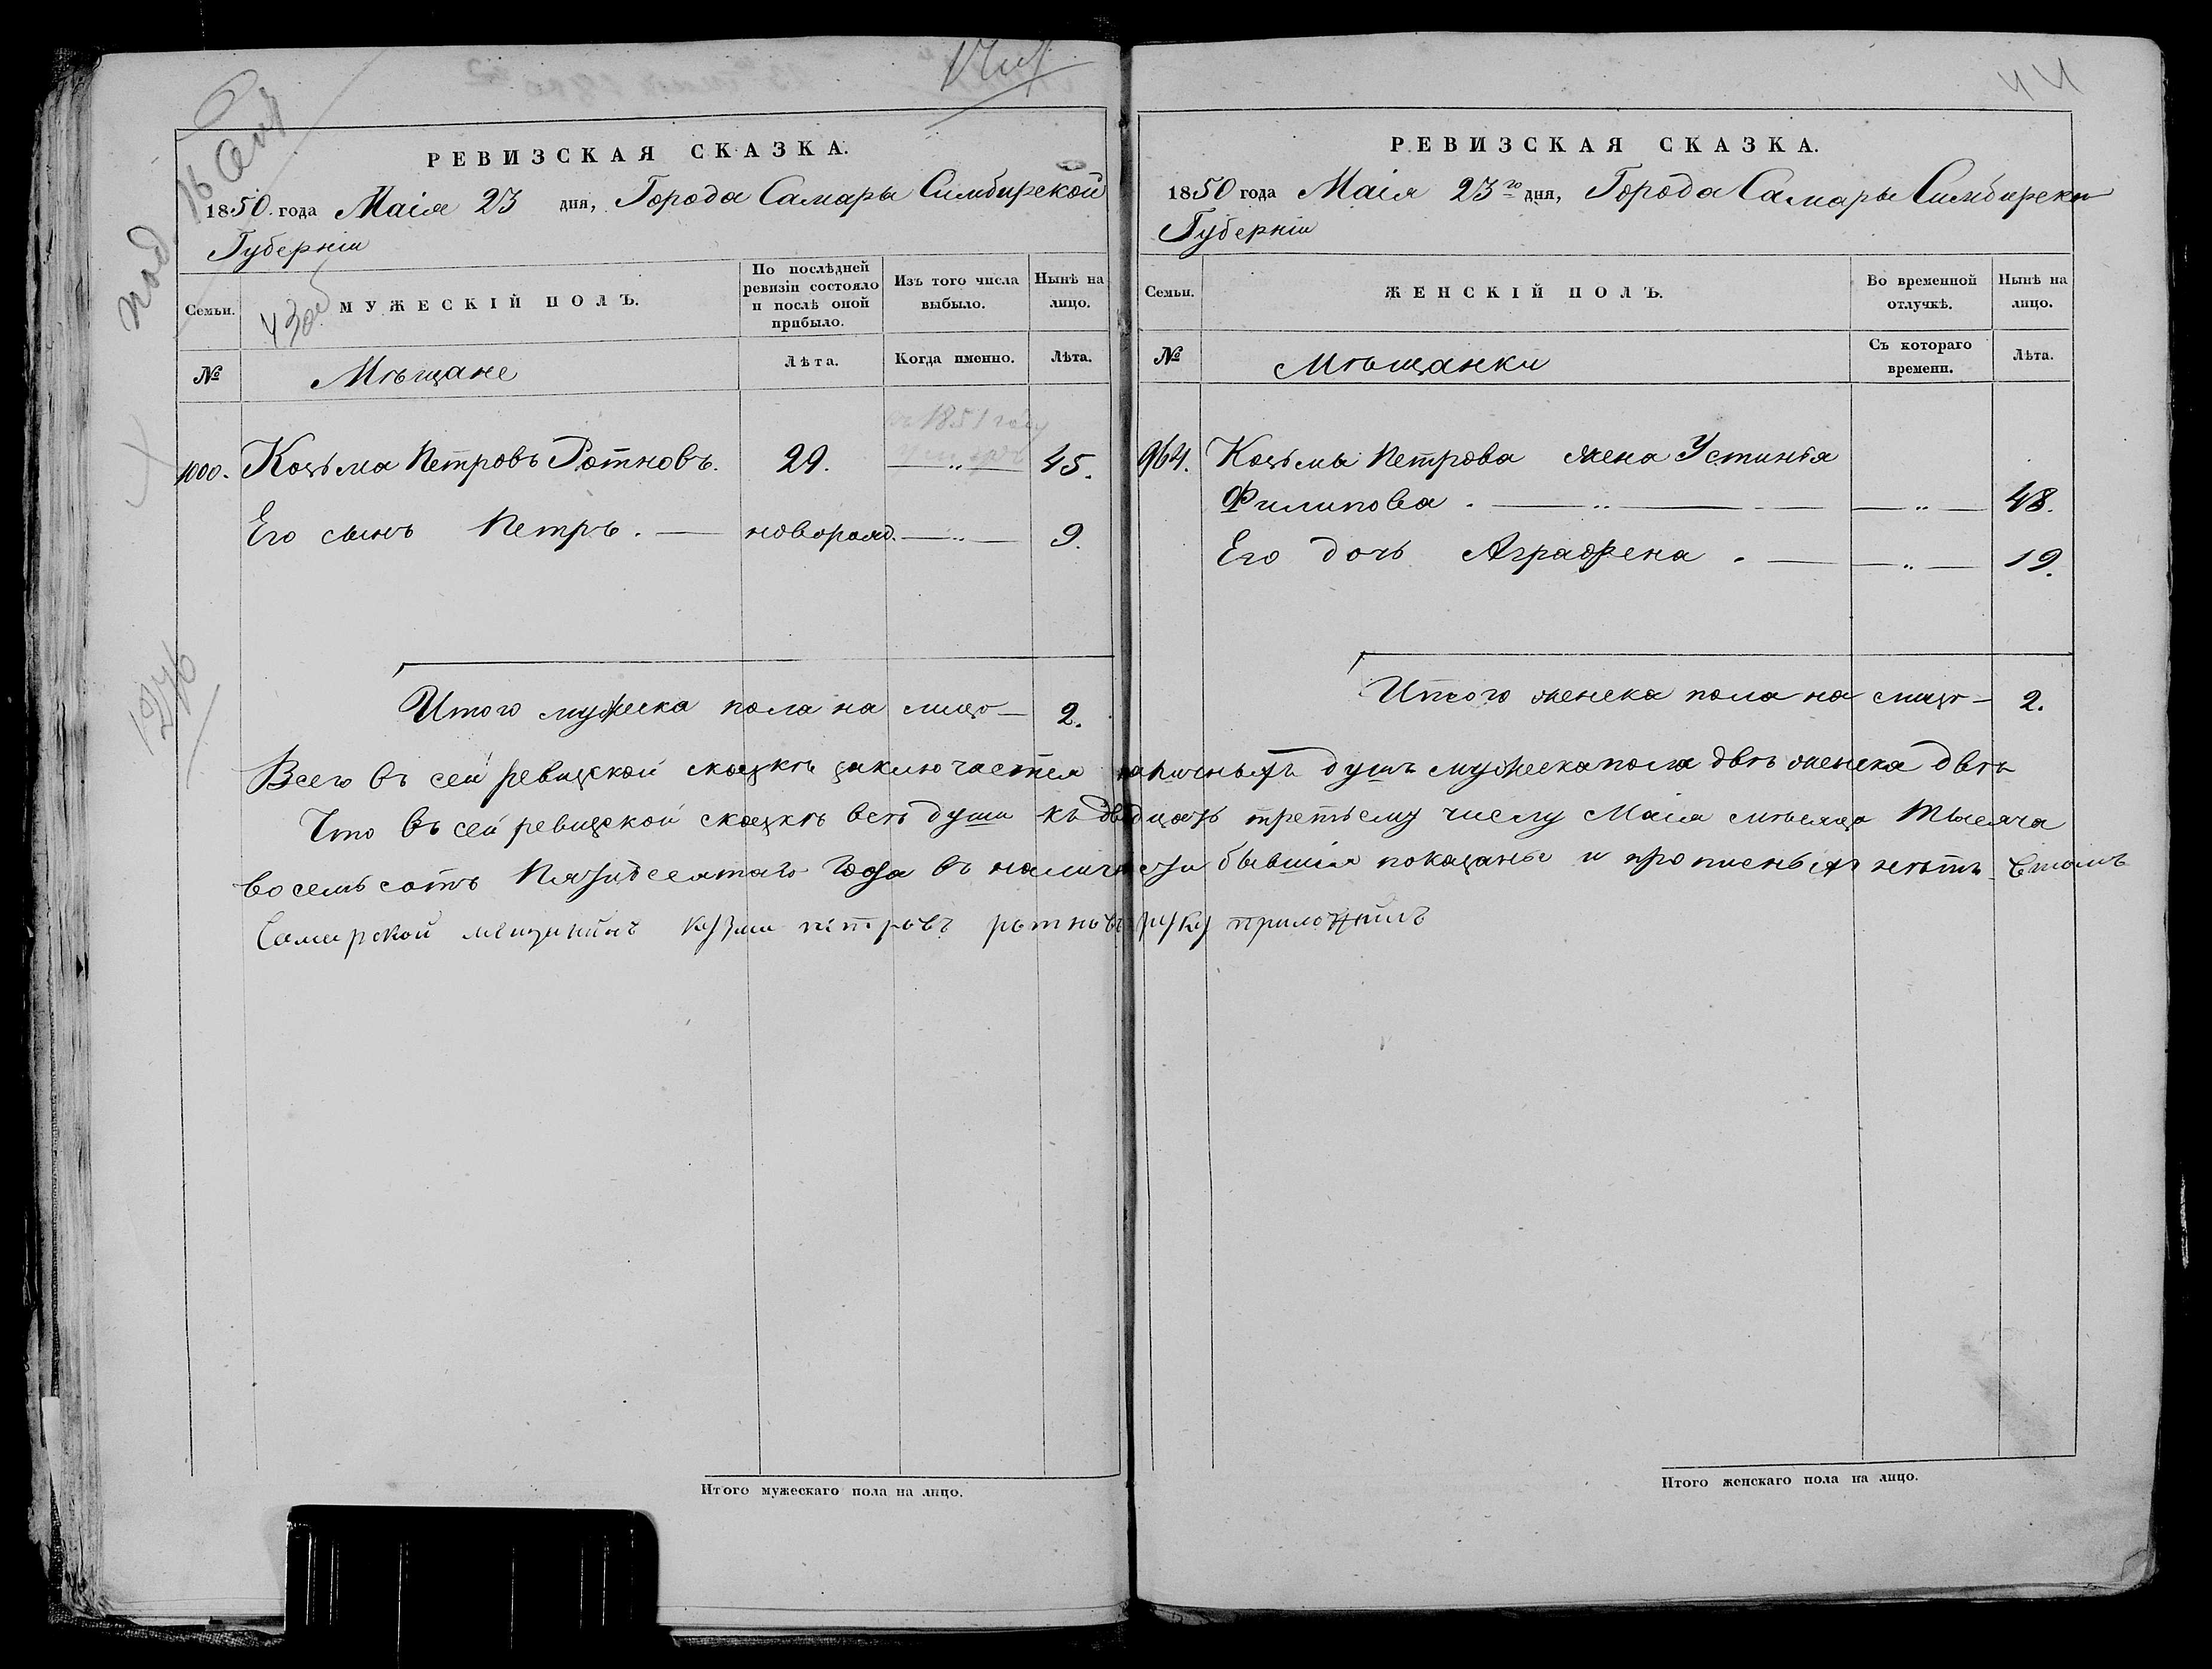 44
РЕВИЗСКАЯ СКАЗКА.
1850. года Маія 23 дня, Города Самары Симбирской
Губерніи
Семьи.
МУЖЕСКІЙ ПОЛЪ.
По послѣдней ревизіи состояло и послѣ оной прибыло.
Изъ того числа выбыло.
Нынѣ на лицо.
№
Мѣщане
Лѣта.
Когда именно.
Лѣта.
въ 1851 году
1000. Козьма Петровъ Ротновъ. 29. — „ — 45.
Его сынъ Петръ. — новорожд. — „ — 9.
Итого мужеска пола на лицо — 2.
РЕВИЗСКАЯ СКАЗКА.
1850 года Маія 23го дня, Города Самары Симбирской
Губерніи
Семьи.
ЖЕНСКІЙ ПОЛЪ.
Во временной отлучкѣ.
Нынѣ на лицо.
№
Мѣщанки
Съ котораго времени.
Лѣта.
964. Козьмы Петрова жена Устинья
Филипова . — „ — — „ — 48.
Его дочь Аграфена . — — „ — 19.
Итого женска пола на лицо — 2.
Всего въ сей ревизской сказкѣ заключается наличныхъ душъ мужеска пола двѣ женска двѣ
Что въ сей ревизской сказкѣ всѣ души къ двадцать третьему числу Маія мѣсяца тысяча
восемьсотъ пятидесятаго года въ наличности бывшія показаны и прописныхъ нѣтъ. Въ томъ
Самарской мещининъ кузма петровъ ротновъ руку приложилъ
Итого мужескаго пола на лицо.
Итого женскаго пола на лицо.
1276